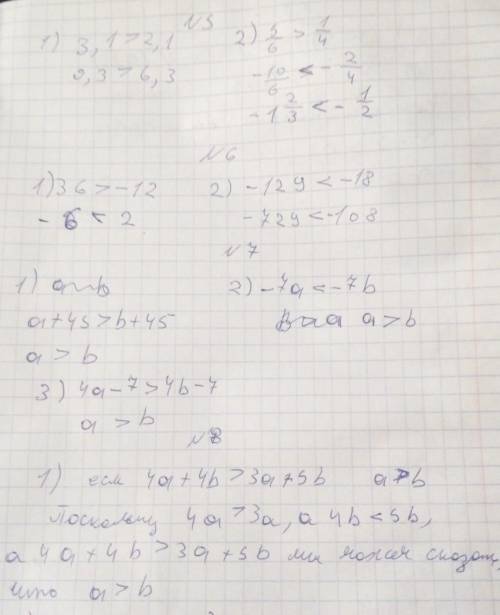 №5
1) 3,1 > 2,1 2) 5/6 > 1/4
9,3 > 6,3 -10/6 < -2/4
-1 2/3 < -1/2
№6
1) 36 > -12 2) -129 < -18
-6 < 2 -729 < -108
№7
1) a b 2) -7a < -7b
a+45 > b+45 a > b
a > b
3) 4a-7 > 4b-7
a > b
№8
1) если 4a+4b > 3a+5b a > b
Поскольку 4a > 3a, а 4b < 5b,
а 4a+4b > 3a+5b мы можем сказать,
что a > b